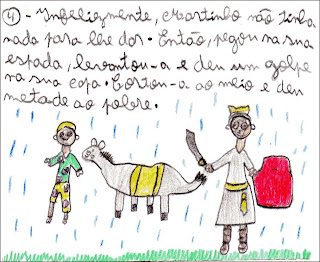 4 - Infelizmente, Martinho não tinha
nada para lhe dar. Então, pegou na sua
espada, levantou-a e deu um golpe
na sua capa. Cortou-a ao meio e deu
metade ao pobre.